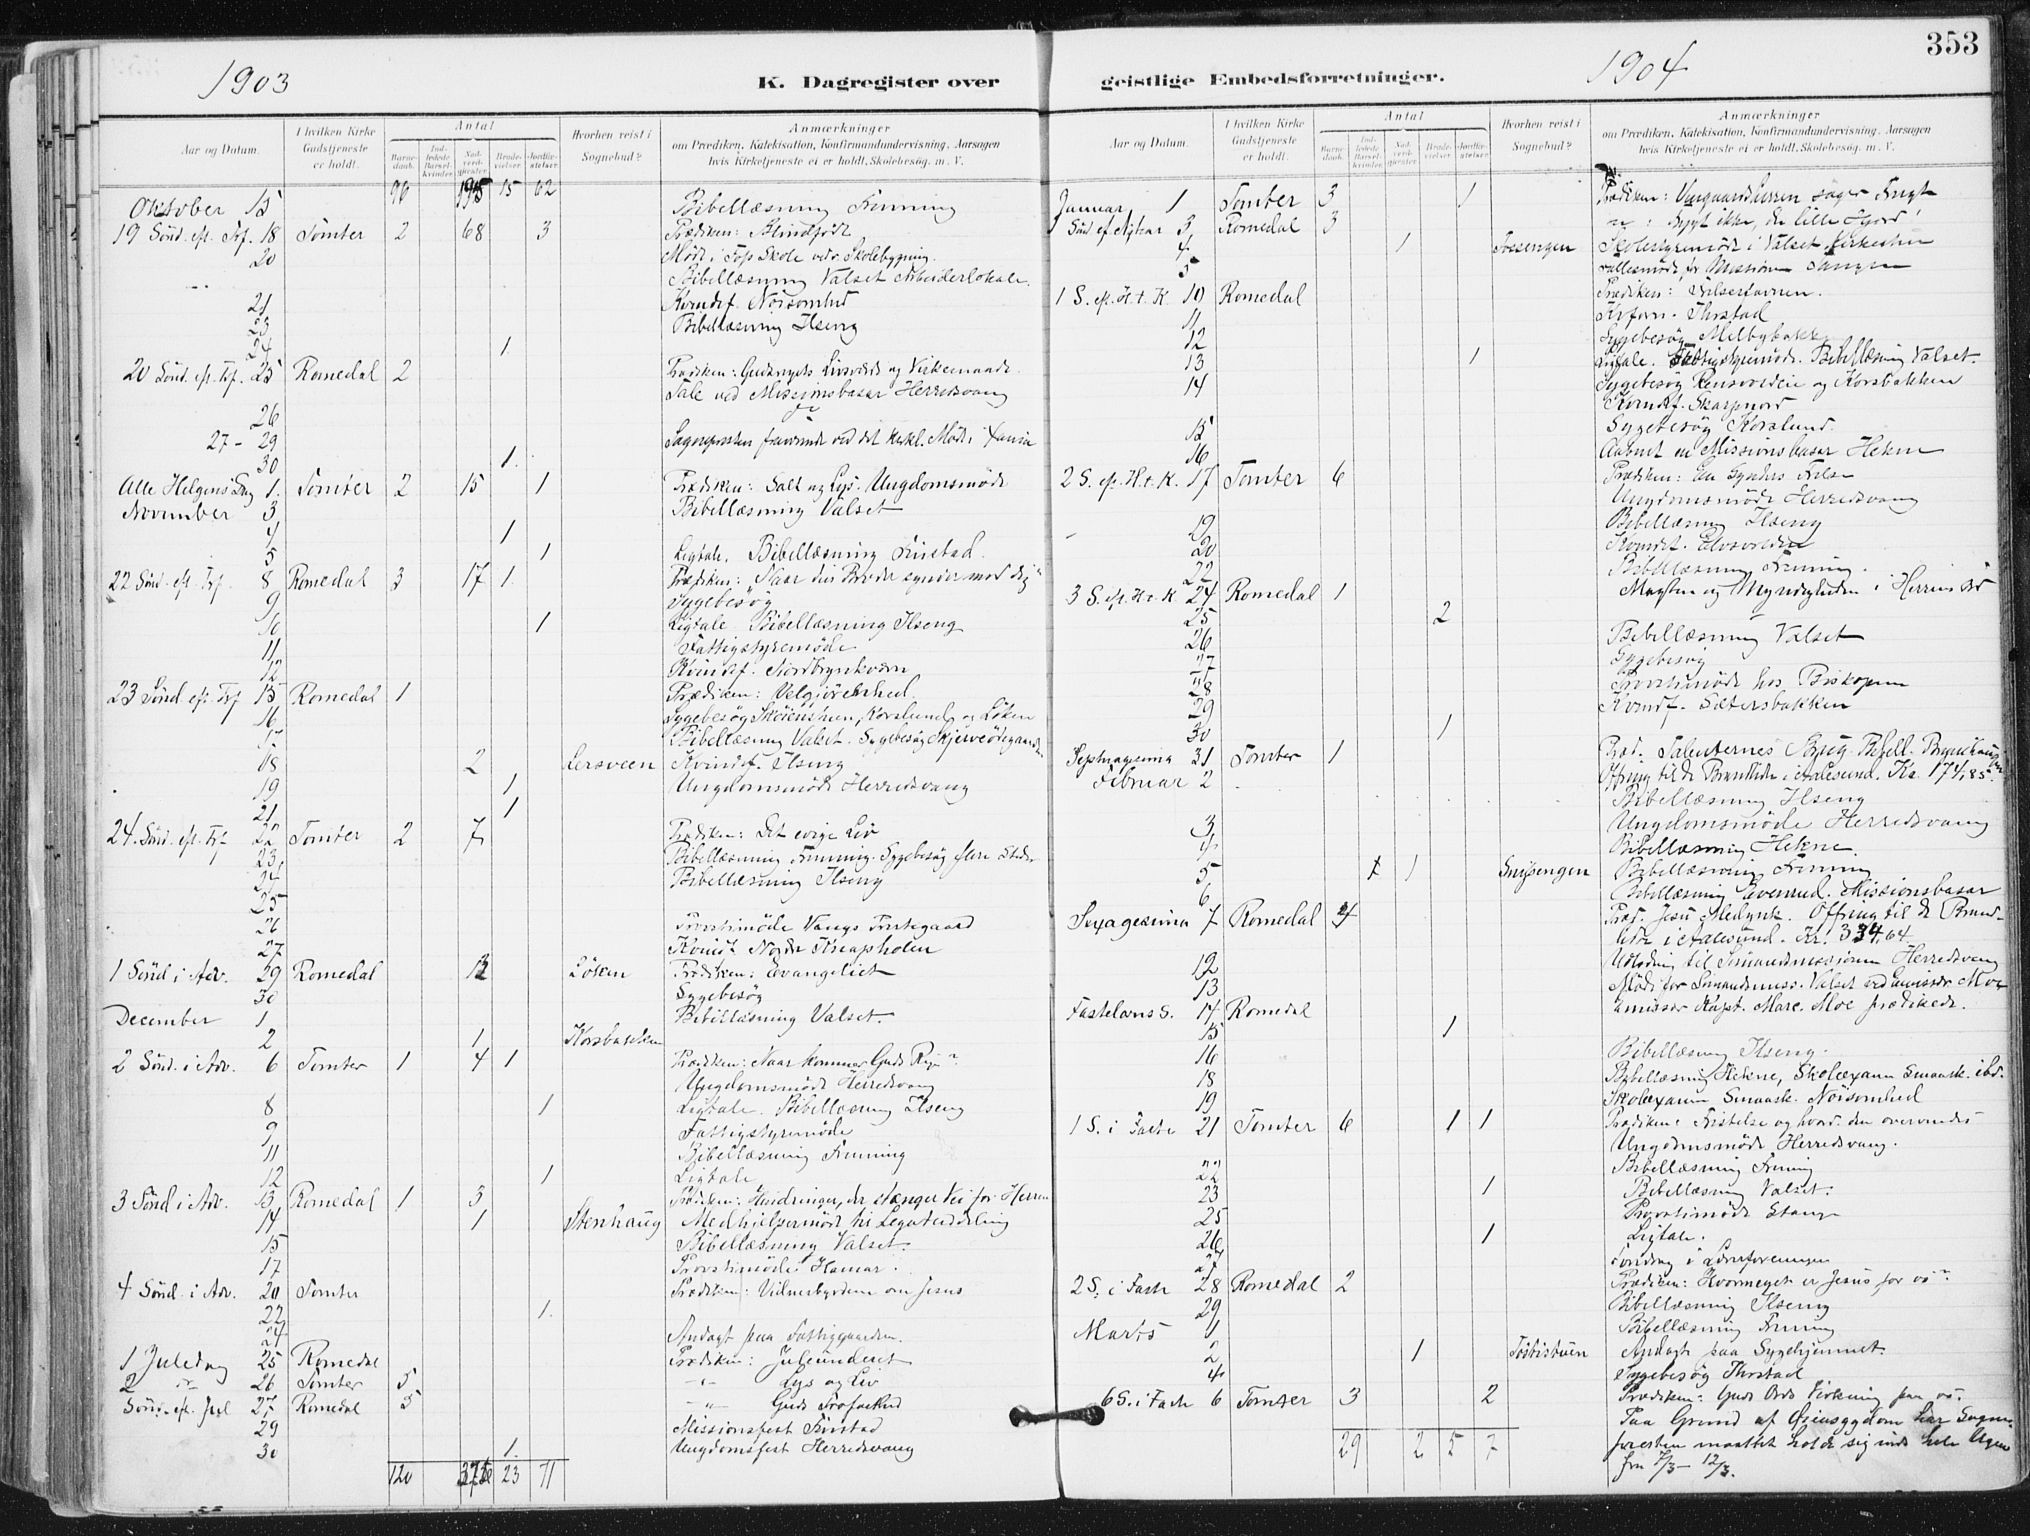 353
1903
K. Dagregister over
Aar og Datum.
I hvilken Kirke Gudstjeneste er holdt.
Antal
Barnedaab.
Indledede Barselkvinder.
Nadverdgjæster.
Brudevielser.
Jordfæstelser.
Hvorhen reist i Sognebud?
Anmærkninger
om Prædiken, Katekisation, Konfirmandundervisning, Aarsagen
hvis Kirketjeneste ei er holdt, Skolebesøg m. V.
Oktober 15 Bibellæsning Finning
19 Sönd. eft. Tref. 18 Tomter 2 68 3 Prædiken: Blindfödt
20 Möde i Skole vedr. Skolebygning.
Bibellæsning Valset Arbeiderlokale.
21 Kvindef. Nöisomhed
23 Bibellæsning Ilseng
24 1
20 Sönd. eft. Tref. 25 Romedal 2 Prædiken: Gudsrigets Livsværd og Virkemaade.
Tale ved Missionsbasar Herredsvang
26
27 - 29 Sognepresten fraværende ved det kirkl. Möde i
30 1
Alle Helgens Dag 1. Tomter 2 15 1 Prædiken: Salt og Lys. Ungdomsmöde
November 3 Bibellæsning Valset
4 1
5 1 Ligtale. Bibellæsning Finstad.
22 Sönd. eft. Tref. 8 Romedal 3 17 1 Prædiken: Naar din Broder synder mod dig"
9 Sygebesög
10 1 Ligtale Bibellæsning Ilseng
11 Fattigstyremöde
12 Kvindef. Nordbrynkværn
23 Sönd. eft. Tref 15 Romedal 1 Prædiken: Velgjörenhed.
16 Sygebesög Korslund og Löken
17 Bibellæsning Valset. Sygebesög
18 2 Lersveen Kvindef. Ilseng
19 1 Ungdomsmöde Herredsvang
21 1
24. Sönd. eft. Tref 22 Tomter 2 7 Prædiken: Det evige Liv
23 Bibellæsning Finning. Sygebesög flere Steder
24 Bibellæsning Ilseng
25
26 Provstimöde Vangs Prestegaard
27 Kvindf. Nordre Knapholen
1 Sönd i Adv. 29 Romedal Löken Prædiken: Evangeliet
30 Sygebesög
December 1 Bibellæsning Valset.
2 1 Korsbakken
2 Sönd. i Adv. 6 Tomter 1 4 1 Prædiken: Naar kommer Guds Rige?
Ungdomsmöde Herredsvang
8 1 Ligtale. Bibellæsning Ilseng
9 Fattigstyremöde
11 Bibellæsning Finning
12 1 Ligtale
3 Sönd i Adv. 13 Romedal 1 3 Prædiken: Hindringer, der stænger Vei for Herren
14 1 Stenhaug Medhjelpermöde til Legatuddeling
15 Bibellæsning Valset.
17 Provstimöde Hamar.
4 Sönd. i Adv. 20 Tomter Prædiken: Vidnesbyrdene om Jesus
22 1.
24 Andagt paa Fattiggaarden.
1 Juledag 25 Romedal Prædiken: Juleunderet
2 26 Tomter 5 Lys og Liv
Sönd. eft. Jul 27 Romedal 5 Guds Trofasthed
29 Missionsfest Finstad
30 1. Ungdomsfest Herredsvang
120 23 71
geistlige Embedsforretninger.
1904
Aar og Datum.
I hvilken Kirke Gudstjeneste er holdt.
Antal
Barnedaab.
Indledede Barselkvinder.
Nadverdgjæster.
Brudevielser.
Jordfæstelser.
Hvorhen reist i Sognebud?
Anmærkninger
om Prædiken, Katekisation, Konfirmandundervisning, Aarsagen
hvis Kirketjeneste ei er holdt, Skolebesøg m. V.
Januar 1 Tomter 3 1 Prædiken: Vingaardsherren söger Frugt
Sönd ef Nytaar 3 Romedal 3 Frygt ikke, du lille Hjord!
4 1 Skolestyremöde i Valset
5 Fællesmöde for Missionen
1 S. ef. H. t. K. 10 Romedal Prædiken:
11 Thostad
12 Sygebesög Melbybakk
13 1 Ligtale. Fattigstyremöde. Bibellæsning Valset.
14 Sygebesög og Korsbakken
Kvindf. Skarpnord
15 Sygebesög Korslund.
16 Aabnet en Missionsbasar Hekne
2 S. ef. H. t. K. 17 Tomter 6 Prædiken: En Synders Frelse
Ungdomsmöde Herredsvang
19 Bibellæsning Ilseng
20 Kvindef.
22 Bibellæsning Finning.
3 S. ef. H. t. K 24 Romedal 1 Magten og Myndigheden i Herrens Ord
25 2
26 Bibellæsning Valset
27 Sygebesög
28 Provstimöde hos Biskopen
29 Kvindf. Sætersbakken
30 1
Septuagesima 31 Tomter 1 Præd. Talenternes Brug.
Februar 2 Offring til de Brandlidte i Aalesund. Kr. 174,85.
Bibellæsning Ilseng
3 Ungdomsmöde Herredsvang
4 Bibellæsning Hekne.
5 1 Snipsengen Bibellæsning Finning
6 Bibellæsning Evenrud. Missionsbasar
Sexagesima 7 Romedal Præd. Jesu Medynk. Offring til de Brand-
lidte i Aalesund. Kr. 334,64
12 Udlodning til Sömandsmissionen Herredsvang
13 Möde for Sömandsmiss. Valset ved Emissær Moe
Fastelavns S. 14 Romedal Emissær Kapt. Marc. Moe prædikede.
15 1
16 Bibellæsning Ilseng.
18 Bibellæsning Hekne, Skoleexamen Smaask. ibd.
19 Skoleexamen Smaask. Nöisomhed
1 S. i Faste 21 Tomter 6 1 1 Prædiken: Fristelse og hvord. den overvindes
Ungdomsmöde Herredsvang.
22 Bibellæsning Finning
23 1 Bibellæsning Valset.
25 Provstimöde Stange
26 1 Ligtale.
27 Foredrag i Lærerforeningen
2 S. i Faste 28 Romedal 2 Prædiken: Hvormeget er Jesus for os?
29 Bibellæsning Ilseng
Marts 1 Bibellæsning Finning
2 1 Andagt paa Sygehjemmet.
4 Sygebesög Thostad
6 S. i Faste 6 Tomter 3 2 Prædiken: Guds Ords Virkning paa os.
Paa Grund af Öiensygdom har Sogne-
29 2 5 7 presten maattet holde sig inde hele Ugen
fra 7/3 - 12/3.